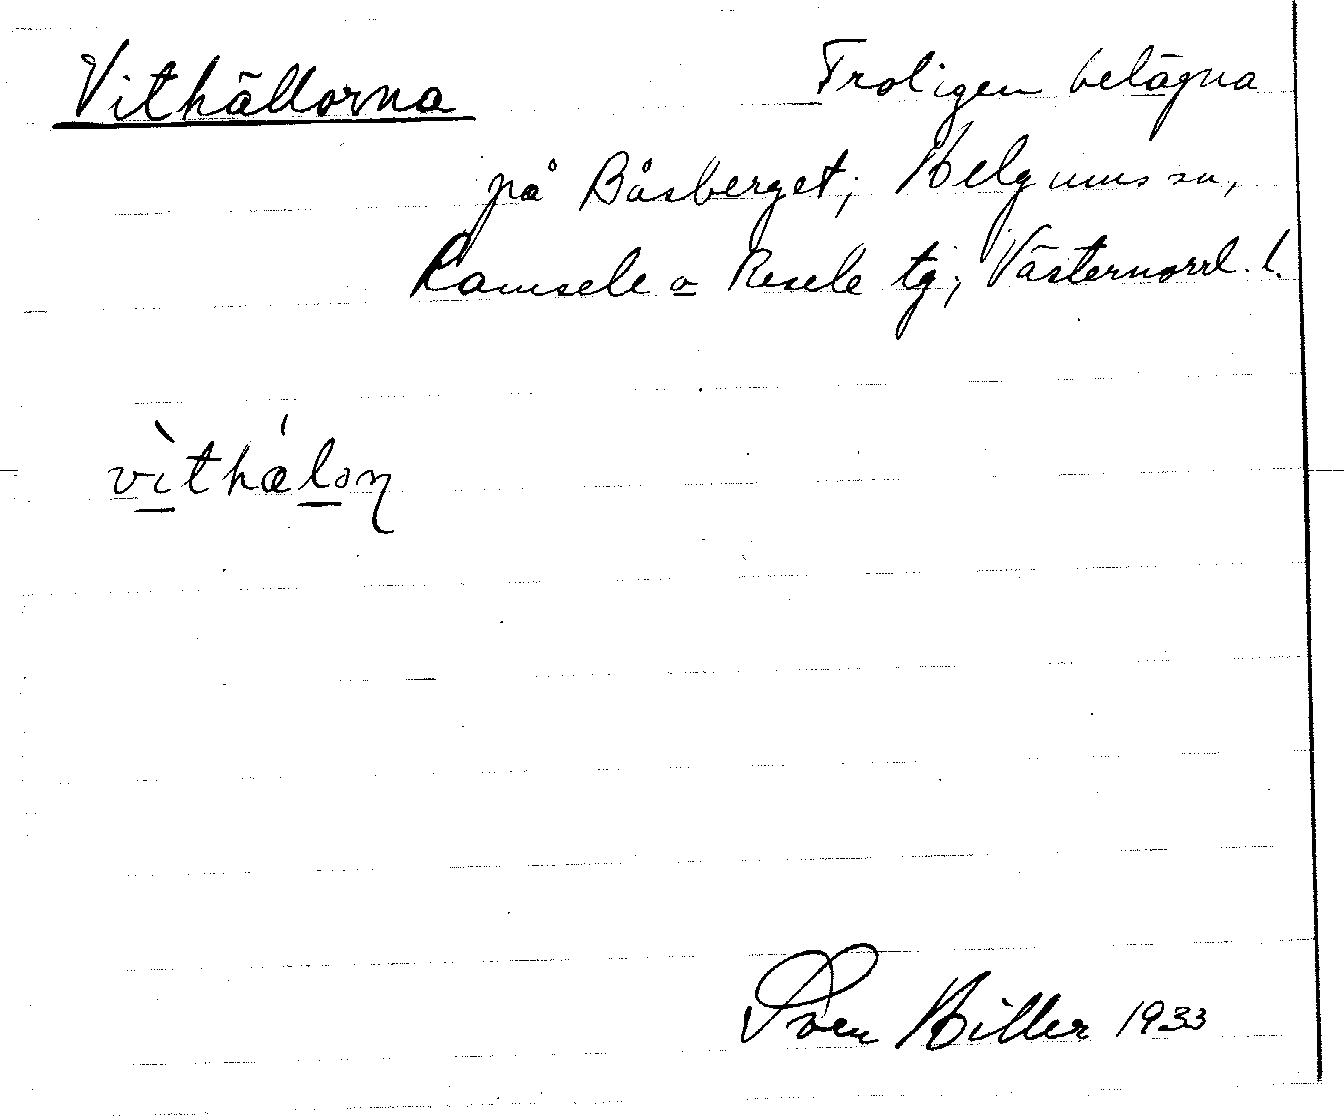 Vithällorna Troligen belägna
på Båsberget; Helgums sn,
Ramsele o Resele tg; Västernorrl. l.
vìthǽloɳ
Sven Hiller 1933